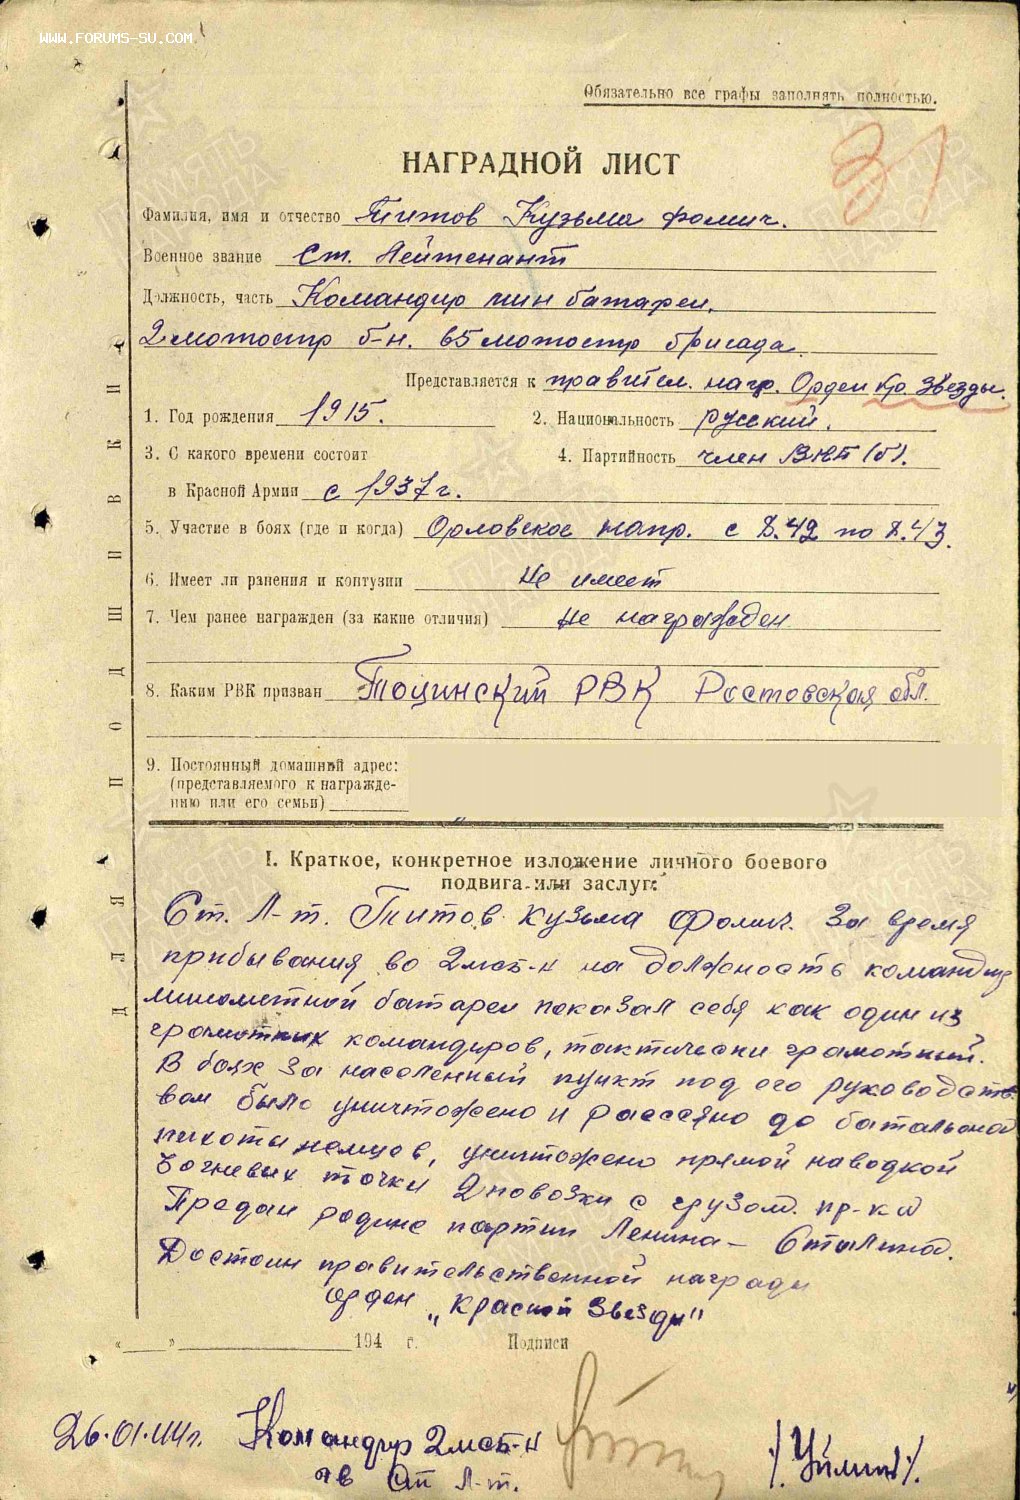 WWW.FORUMS-SU.COM
Обязательно все графы заполнять полностью.
НАГРАДНОЙ ЛИСТ
Фамилия, имя и отчество Титов Кузьма Фомич.
Военное звание Ст. Лейтенант
Должность, часть Командир мин батареи,
2 мотостр б-н. 65 мотостр бригада.
Представляется к правител. нагр. Орден Кр. Звезды.
1. Год рождения 1915. 2. Национальность русский.
3. С какого времени состоит 4. Партийность член ВКП(б).
в Красной Армии с 1937 г.
5. Участие в боях (где и когда) Орловское напр. с 8.42 по 8.43.
6. Имеет ли ранения и контузии Не имеет
7. Чем ранее награжден (за какие отличия) Не награжден
8. Каким РВК призван Тоцинский РВК Ростовская обл.
9. Постоянный домашний адрес:
(представляемого к награжде-
нию или его семьи)
ДЛЯ ПОДШИВКИ
I. Краткое, конкретное изложение личного боевого
подвига или заслуг:
Ст. Л-т. Титов Кузьма Фомич. За время
прибывания во 2мсб-н на должность командир
минометной батареи показал себя как один из
грамотных командиров, тактически грамотный.
В боях за населенный пункт под его руководств
вом было уничтожено и рассеяно до батальона
пихоты немцев, уничтожено прямой наводкой
огневых точки 2 повозки с грузом. пр-ка
Предан родине партии Ленина – Сталина.
Достоин правительственной награды
орден "Красной Звезды"
" " 194 г. Подписи
26.01.44г. Командир 2мсб-н
гв Ст Л-т.